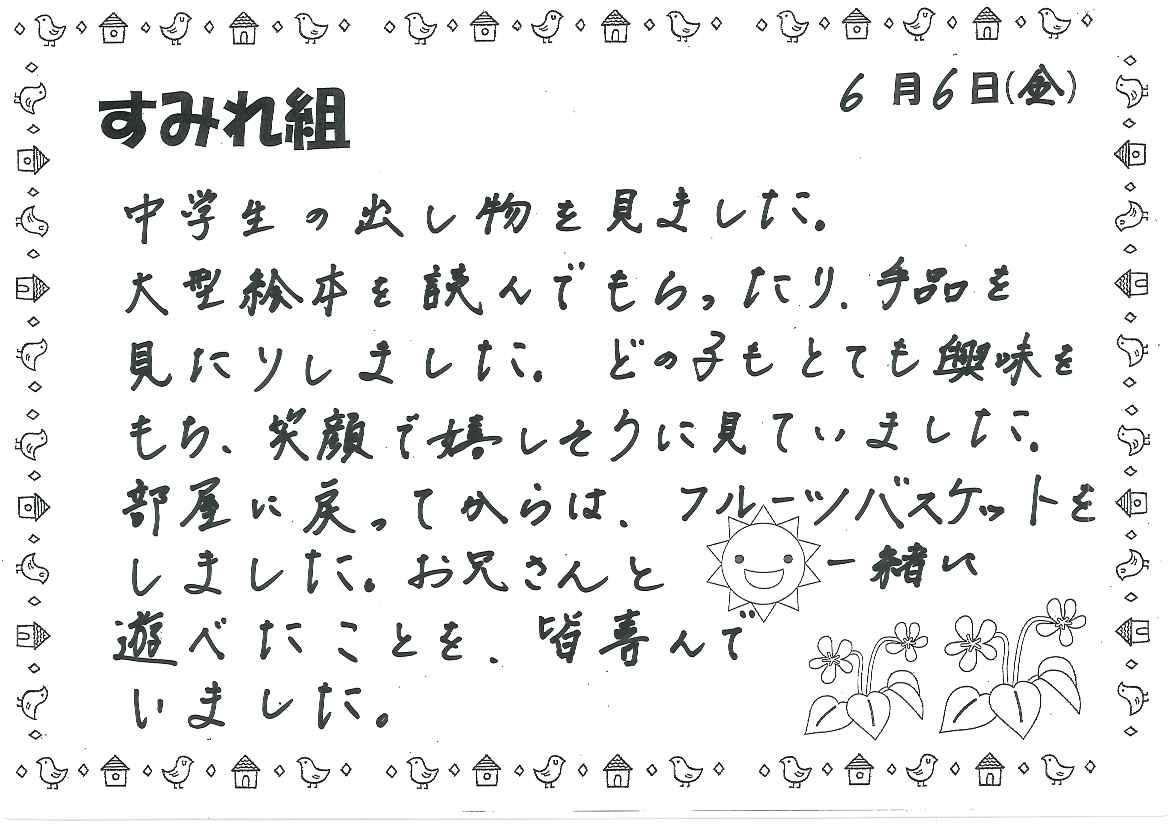 6月6日(金)
すみれ組
中学生の出し物を見ました。
大型絵本を読んでもらったり、手品を
見たりしました。どの子もとても興味を
もち、笑顔で嬉しそうに見ていました。
部屋に戻ってからは、フルーツバスケットを
しました。お兄さんと一緒に
遊べたことを、皆喜んで
いました。